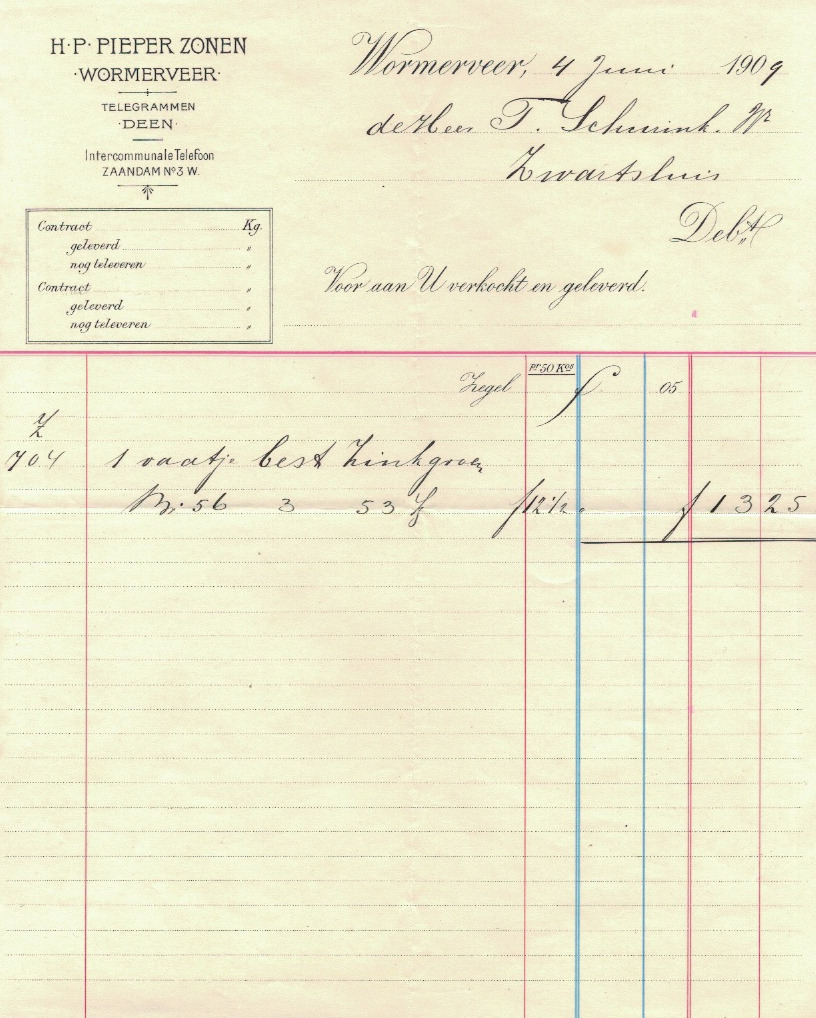 H·P· PIEPER ZONEN
·WORMERVEER·
TELEGRAMMEN
·DEEN·
Intercommunale Telefoon
ZAANDAM Nº3 W.
Contract Kg.
geleverd "
nog televeren "
Contract "
geleverd "
nog televeren "
Wormerveer, 4 Juni 1909
de Heer T. Schuurink. Wz
Zwartsluis
Debt
Voor aan U verkocht en geleverd.
pr 50 Kos
Zegel f 05
704 1 vaatje best Zinkgroen
Br: 56 3 53 f 12½ f 13 25